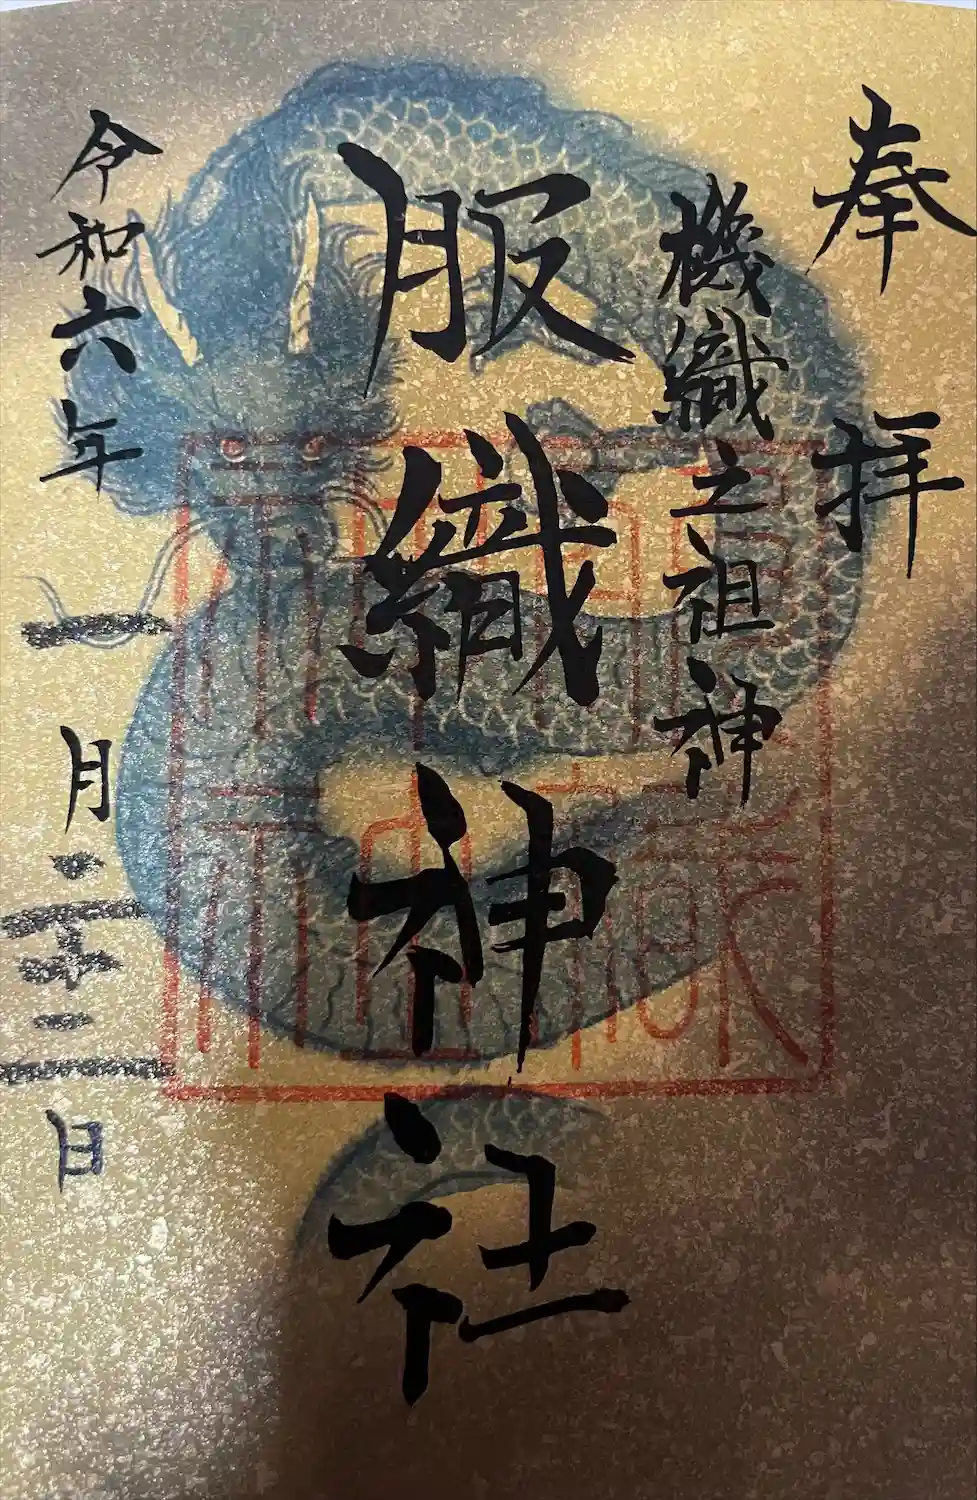 奉拝
機織之祖神
服織神社
令和六年一月二十三日